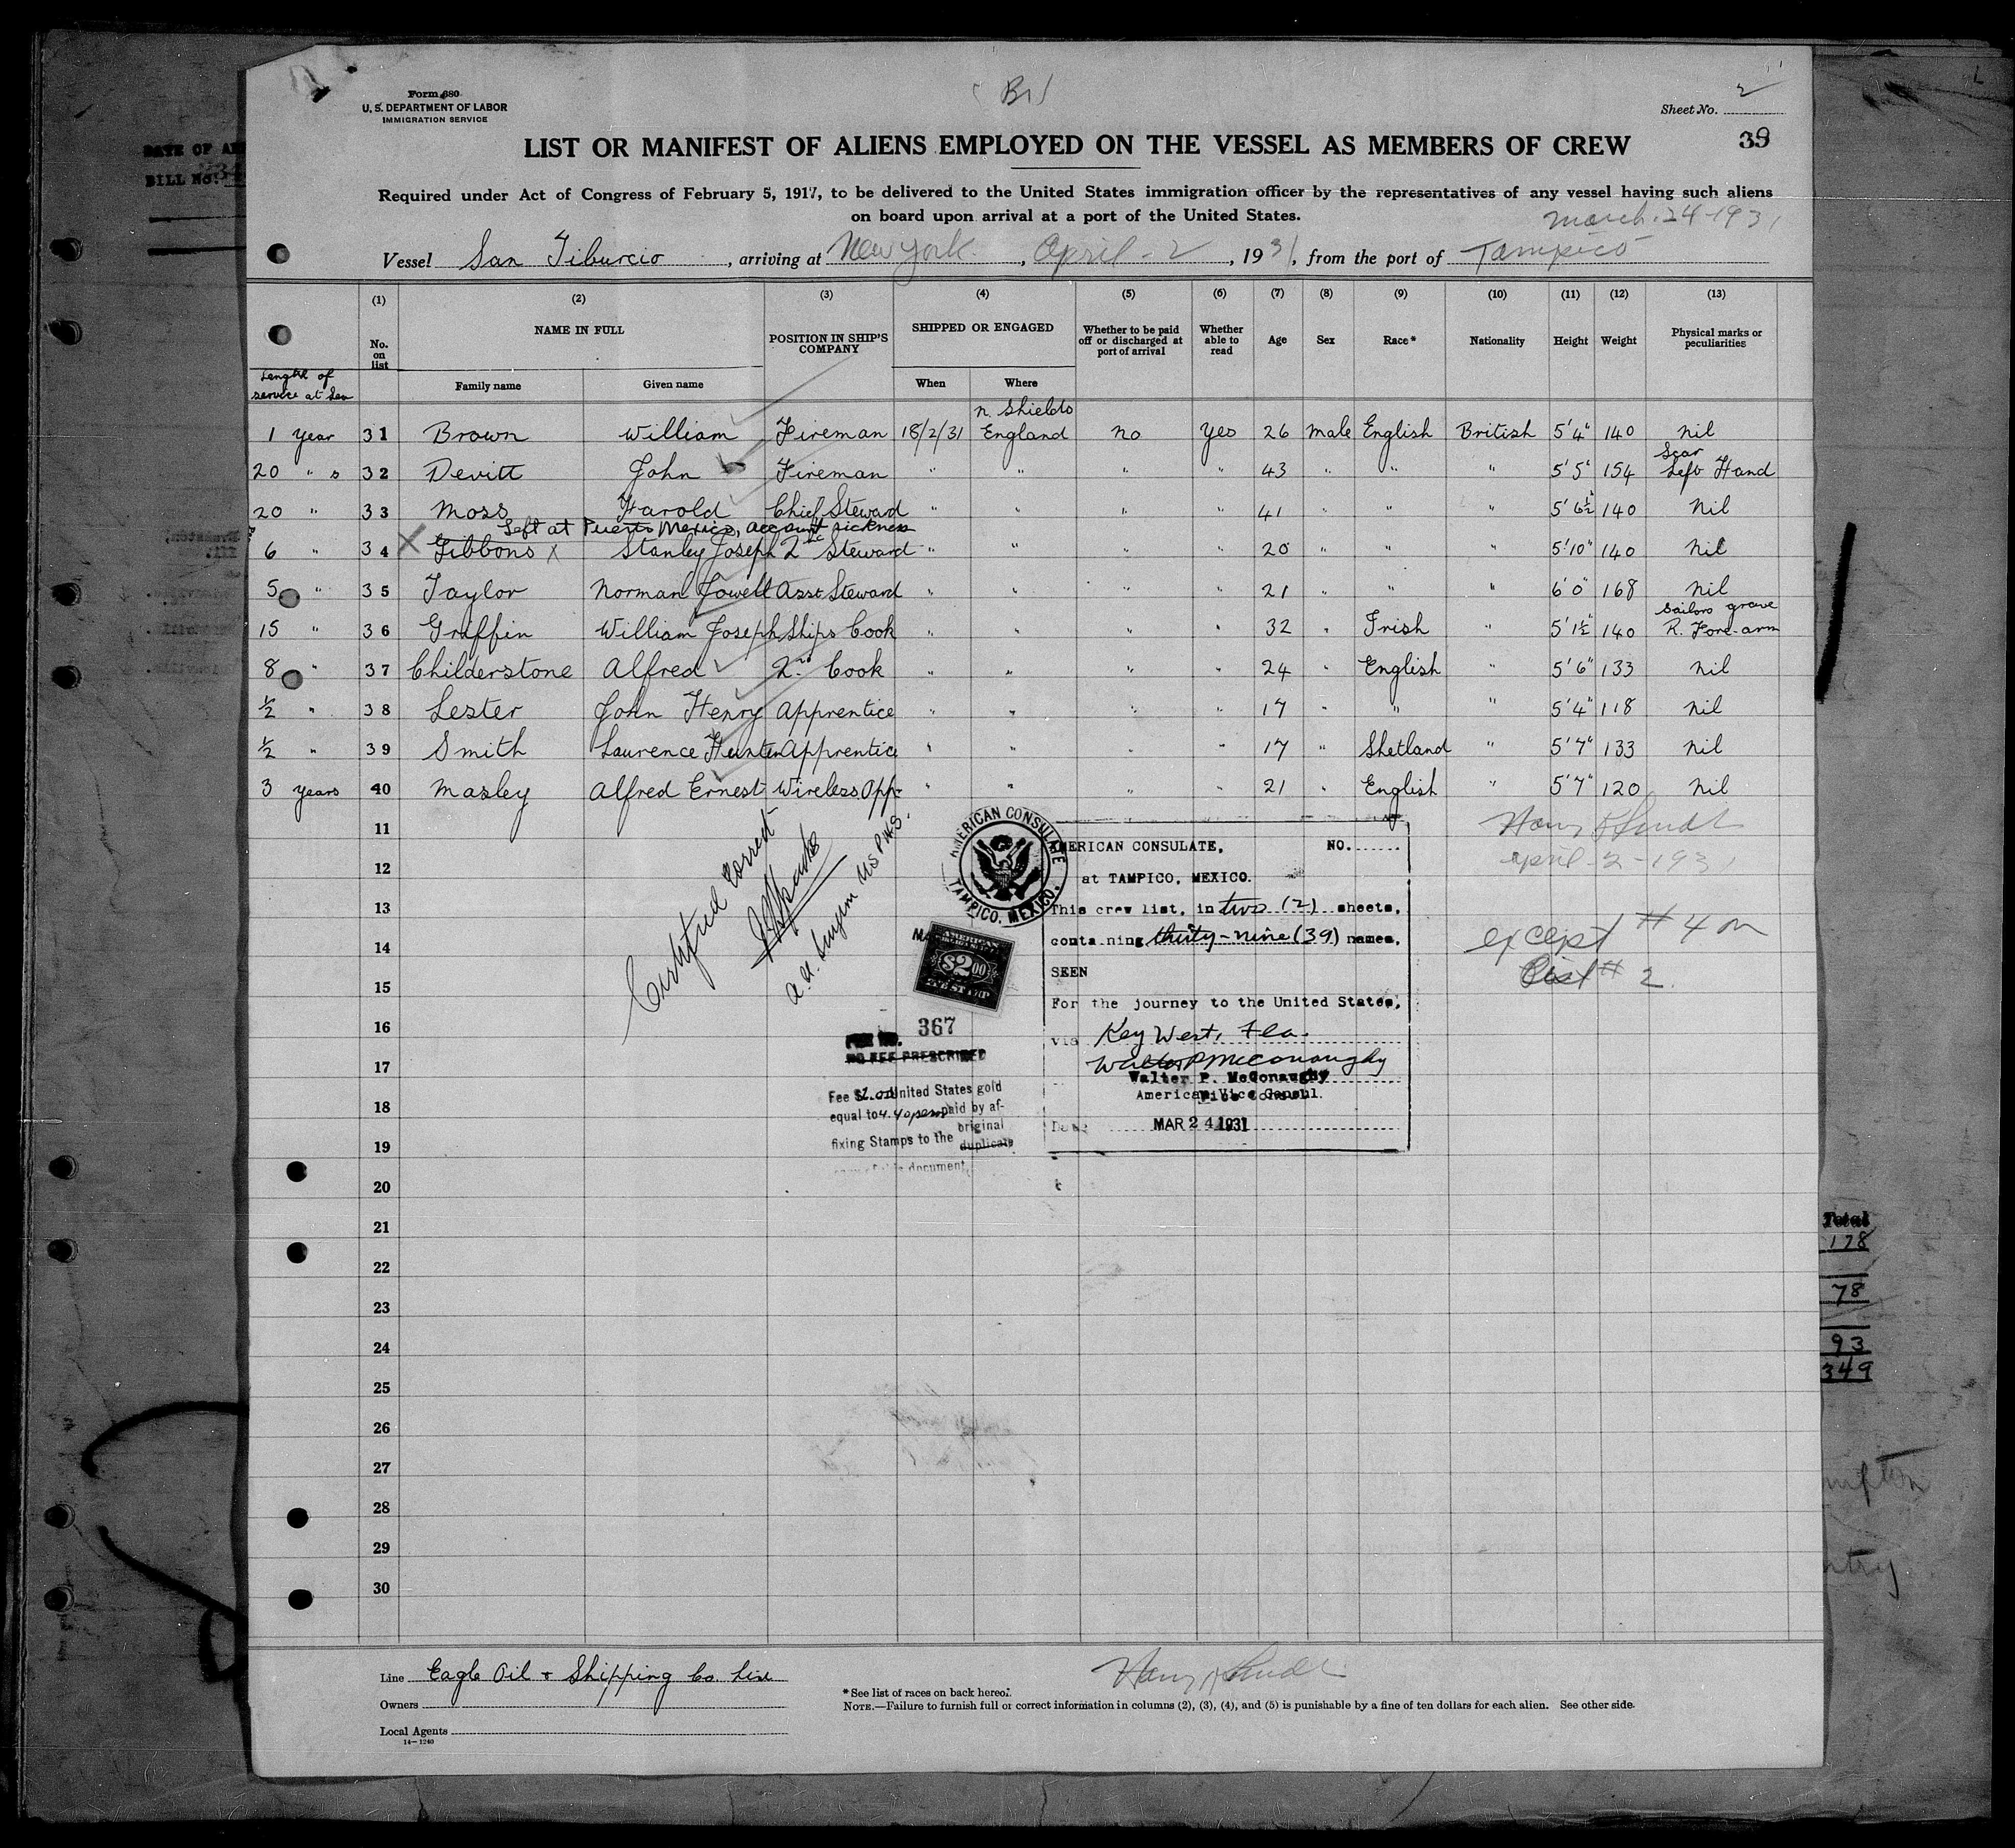 Form 680
U. S. DEPARTMENT OF LABOR
IMMIGRATION SERVICE
Sheet No. 2
39
LIST OR MANIFEST OF ALIENS EMPLOYED ON THE VESSEL AS MEMBERS OF CREW
Required under Act of Congress of February 5, 1917, to be delivered to the United States immigration officer by the representatives of any vessel having such aliens
on board upon arrival at a port of the United States.
March. 24-1931
Vessel San Tiburcio, arriving at New York, April - 2, 1931, from the port of Tampico
(1) (2) (3) (4) (5) (6) (7) (8) (9) (10) (11) (12) (13)
Length of service at Sea
No. on list
NAME IN FULL
Family name Given name
POSITION IN SHIP'S COMPANY
SHIPPED OR ENGAGED
When Where
Whether to be paid off or discharged at port of arrival
Whether able to read
Age Sex Race* Nationality Height Weight
Physical marks or peculiarities
1 year 31 Brown William Fireman 18/2/31 N. Shields England No Yes 26 Male English British 5'4" 140 Nil
20 " s 32 Devitt John Fireman " " " " 43 " " " 5'5" 154 Scar Left Hand
20 " 33 Moss Harold Chief Steward " " " " 41 " " " 5'6½" 140 Nil
Left at Puerto Mexico, account sickness
6 " 34 Gibbons Stanley Joseph 2nd Steward " " " " 20 " " " 5'10" 140 Nil
5 " 35 Taylor Norman Jowell Asst Steward " " " " 21 " " " 6'0" 168 Nil
15 " 36 Griffin William Joseph Ships Cook " " " " 32 " Irish " 5'1½" 140 Sailors grave R. Fore-arm
8 " 37 Childerstone Alfred 2nd Cook " " " " 24 " English " 5'6" 133 Nil
½ " 38 Lester John Henry Apprentice " " " " 17 " " " 5'4" 118 Nil
½ " 39 Smith Laurence Hunter Apprentice " " " " 17 " Shetland " 5'7" 133 Nil
3 years 40 Masley Alfred Ernest Wireless Opp. " " " " 21 " English " 5'7" 120 Nil
11
12
13
14
15
16
17
18
19
20
21
22
23
24
25
26
27
28
29
30
Certified Correct
AMERICAN CONSULATE
TAMPICO, MEXICO.
AMERICAN
$2.00
FEE STAMP
367
FEE NO.
NO FEE PRESCRIBED
Fee $2.00 United States gold
equal to 4.40 pesos paid by af-
fixing Stamps to the original duplicate
document.
AMERICAN CONSULATE, NO.
at TAMPICO, MEXICO.
This crew list, in two (2) sheets,
containing thirty-nine (39) names,
SEEN
For the journey to the United States,
via Key West, Fla.
Walter P. McConaughy
Walter P. McConaughy
American Vice Consul.
Date MAR 24 1931
April-2-1931
except #4 on
List # 2
Line Eagle Oil & Shipping Co. Line
Owners
Local Agents
14—1240
* See list of races on back hereof.
NOTE.—Failure to furnish full or correct information in columns (2), (3), (4), and (5) is punishable by a fine of ten dollars for each alien. See other side.
DATE OF
BILL NO.
Total
178
78
93
349